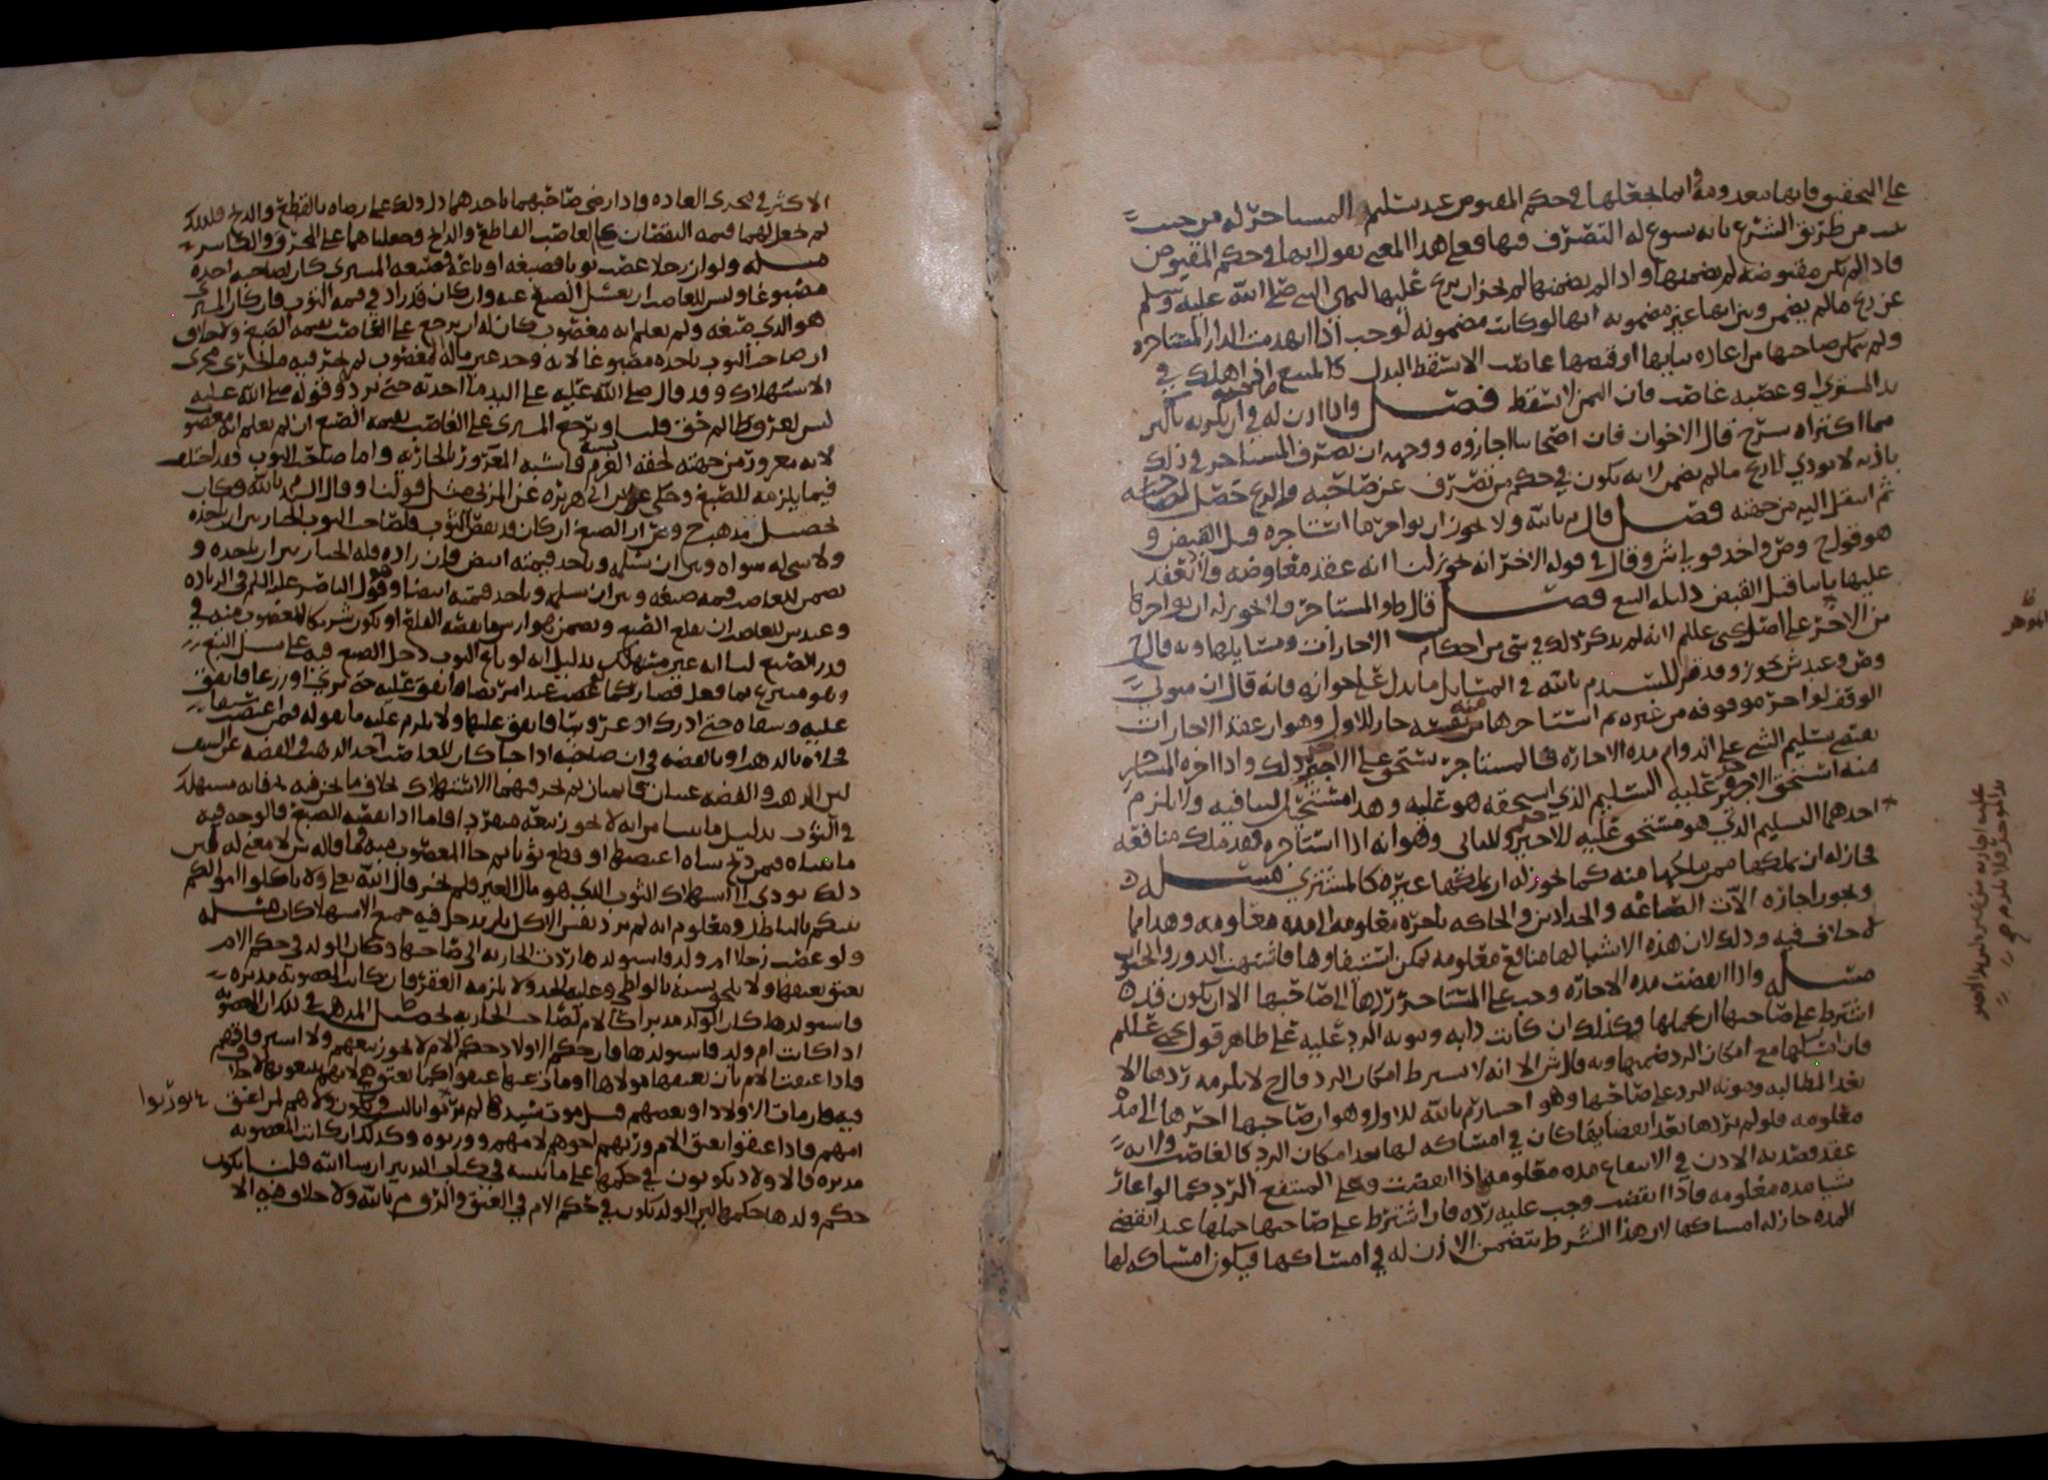 على التحقيق فانها معدومة وانما جعلها في حكم المقبوض عند تسليم المستاجر له من حيث
من طريق الشرع بانه يسوغ له التصرف فيها فعلى هذا المعنى نقول انها في حكم المقبوض
فاذا لم تكن مقبوضه لم يضمنها واذا لم يضمنها لم يجز ان يربح عليها لنهي النبي صلى الله عليه وسلم
عن ربح ما لم يضمن وبين انها غير مضمونه انها لو كانت مضمونه لوجب اذا انهدمت الدار المستاجره
ولم يتمكن صاحبها من اعاده بنايها او غصبها غاصب الا يسقط البدل كالمبيع اذا هلك في
يد المشتري او غصبه غاصب فان الثمن لا يسقط فصل واذا اذن له صاحبه في ان يكريه باكثر
مما اكتراه سرح قال الاخوان فان اصحابنا اجازوه ووجهه ان تصرف المستاجر في ذلك
باذنه لا يودي الى ربح ما لم يضمن لانه يكون في حكم من تصرف عن صاحبه والربح حصل لصاحبه
ثم انتقل اليه من جهته فصل قال م بالله ولا يجوز ان يواجر ما استاجره قبل القبض و
هو قول ح وص واحد قولي ش وقال في قوله الاخر انه يجوز لنا انه عقد معاوضه فلا تنعقد
عليها باننا قبل القبض دليله البيع فصل قال ط والمستاجر لا يجوز له ان يواجرها
من الاجر على اصل يحيى عللم لانه لم يذكر ذلك في شي من احكام الاجارات ومسايلها وبه قال ح
وص وعند ش يجوز وقد مر للسيد م بالله في المسايل ما يدل على جوازه فانه قال ان متولي
الوقف لو اجر موقوفه من غيره ثم استاجرها منه نفسه جاز للاول وهو ان عقد الاجارات
يقتضي تسليم الشي على الدوام مده الاجاره فالمستاجر يستحق على الاجير ذلك واذا اجره المستاجر
منه استحق الاجير عليه التسليم الذي استحقه هو عليه وهذا مستحيل لتنافيه ولا يلزم
احدهما التسليم الذي هو مستحق عليه للاخر وللثاني وهو انه اذا استاجره فقد ملك منافعه
فجاز له ان يملكها ممن ملكها منه كما يجوز له ان يملكها غيره كالمشتري مسله
ويجوز اجازه الآت الصاغه والحدادين والحاكه باجره معلومه الى مده معلومه وهذا مما
لا خلاف فيه وذلك لان هذه الاشيا لها منافع معلومه يمكن استيفاوها فاشبهت الدور والحوانيت
مسله واذا انقضت مده الاجازه وجب على المستاجر ردها الى صاحبها الا ان يكون قد
اشترط على صاحبها ان يحملها وكذلك ان كانت دابه ومونه الرد عليه على ظاهر قول يحيى عللم
فان امسكها مع امكان الرد ضمنها وبه قال ش الا انه لا يشترط امكان الرد قال ح لا يلزمه ردها الا
بعد المطالبه ومونه الرد على صاحبها وهو اختيار م بالله للاول وهو ان صاحبها اجرها الى مده
معلومه فلو لم يردها بعد انقضايها كان في امساكه لها بعد امكان الرد كالغاصب ولانه
عقد مقيد به الاذن في الانتفاع مده معلومه فاذا انقضت وجب على المنتفع الرد كما لو اعار
شيا مده معلومه فاذا انقضت وجب عليه رده فان اشترط على صاحبها حملها عند انقضى
المده جاز له امساكها لان هذا الشرط يتضمن الاذن له في امساكها فيكون امساكه لها
الاكثر في مجرى العاده فاذا رضي صاحبهما باحدهما دل ذلك على رضاه بالقطع والذبح فلذلك
لم يجعل لهما قيمه النقصان كالغاصب القاطع والذابح وجعلناهما على المحرق والكاسر
مسله ولو ان رجلا غصب ثوبا فصبغه او باعه فصبغه المشتري كان لصاحبه اخذه
مصبوغا وليس للغاصب ان يغسل الصبغ عنه وان كان قد زاد في قيمه الثوب فان كان المشتري
هو الذي صبغه ولم يعلم انه مغصوب كان له ان يرجع على الغاصب بقيمه الصبغ ولا خلاف
ان صاحب الثوب ياخذه مصبوغا لانه وجد عين ماله المغصوب لم يجز فيه ما جرى مجرى
الاستهلاك وقد قال صلى الله عليه على اليد ما اخذت حتى ترد وقوله صلى الله عليه
ليس لعرق ظالم حق قلنا ويرجع المشتري على الغاصب بقيمه الصبغ ان لم يعلم انه مغصوب
لانه مغرور من جهته لحقه الغرم بسببه فاشبه المغرور بالجاريه واما صاحب الثوب فقد اختلف
فيما يلزمه للصبغ وحكى عن ابن ابي هريره عن المزني مثل قولنا وقال السيد م بالله فكان
تحصيل مذهب ح وص ان الصبغ ان كان قد نقص الثوب فلصاحب الثوب الخيار بين ان ياخذه
ولا شي له سواه وبين ان يسلمه وياخذ قيمته ابيض فان زاده فله الخيار بين ان ياخذه و
يضمن للغاصب قيمه صبغه وبين ان يسلمه وياخذ قيمته ابيض وهو قول الناصر عليه السلم في الزياده
وعند ش للغاصب ان يقلع الصبغ ويضمن هو ارش ما نقصه القلع او يكون شريكا للمغصوب منه في
قدر الصبغ لنا انه غير مستهلك بدليل انه لو باع الثوب دخل الصبغ فيه على سبيل التبع
وهو متبرع بما فعل فصار كما لو غصب عبدا مريضا فانفق عليه حتى بري او زرعا فانفق
عليه وسقاه حتى ادرك او عروسا فانفق عليها ولا يلزم عليه ما نقوله فمن اغتصب سيفا
فحلاه بالذهب او بالفضه في ان صاحبه اذا جا كان للغاصب اخذ الذهب والفضه عن السيف
لان الذهب والفضه عينان قايمتان لم يجر فيهما الاستهلاك بخلاف ما نحن فيه فانه مستهلك
في الثوب بدليل ما بينا من انه لا يجوز بيعه منفردا فاما اذا نقصه الصبغ فالوجه فيه
ما بيناه فيمن ذبح شاه اغتصبها او قطع ثوبا ثم جا المغصوب منه وما قاله ش لا معنى له لان
ذلك يودي الى استهلاك الثوب الذي هو مال الغير فلم يجز قال الله تعلى ولا تاكلوا اموالكم
بينكم بالباطل ومعلوم انه لم يرد نفس الاكل بل يدخل فيه جميع الاستهلاكات مسله
ولو غصب رجلا ام ولد فاستولدها ردت الجاريه الى صاحبها وكان الولد في حكم الام
يعتق بعتقها ولا يلحق نسبه بالواطي وعليه الحد ولا يلزمه العقر فان كانت المغصوبه مدبره
فاستولدها كان الولد مدبرا كالام لصاحب الجاريه تحصيل المذهب في ذلك ان المغصوبه
اذا كانت ام ولد فاستولدها فان حكم الاولاد حكم الام لا يجوز بيعهم ولا استرقاقهم
فاذا عتقت الام بان يعتقها مولاها او مات عنها عتقوا كما تعتق هي لانهم يتبعونها بلا خلاف
فيه وان مات الاولاد او بعضهم قبل موت سيدها لم يرثوا بالنسب ويكون ولاهم لمن اعتق
امهم فاذا عتقوا بعتق الام ورثهم اخوهم لامهم وورثوه وكذلك ان كانت المغصوبه
مدبره فالاولاد يكونون في حكمها على ما نبينه في كتاب التدبير ان شا الله قلنا يكون
حكم ولدها حكمها لان الولد يكون في حكم الام في العتق والرق م بالله ولا خلاف فيه الا